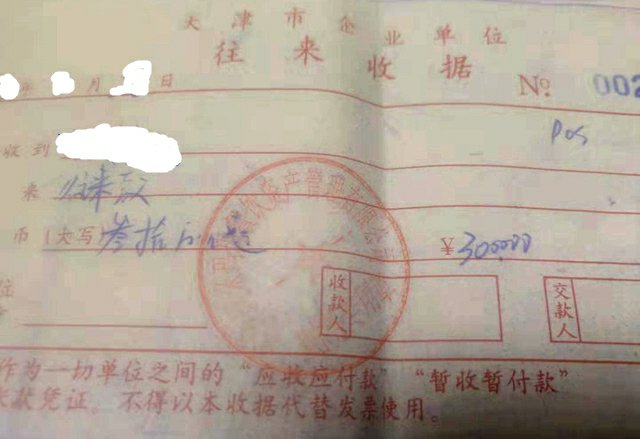 天津市企业单位
往来收据
年 月 日 No 002
收到 Pos
来 往来款
币(大写)叁拾万 ¥300000
收款人 交款人
作为一切单位之间的“应收应付款”“暂收暂付款”
款凭证。不得以本收据代替发票使用。
资产管理有限公司